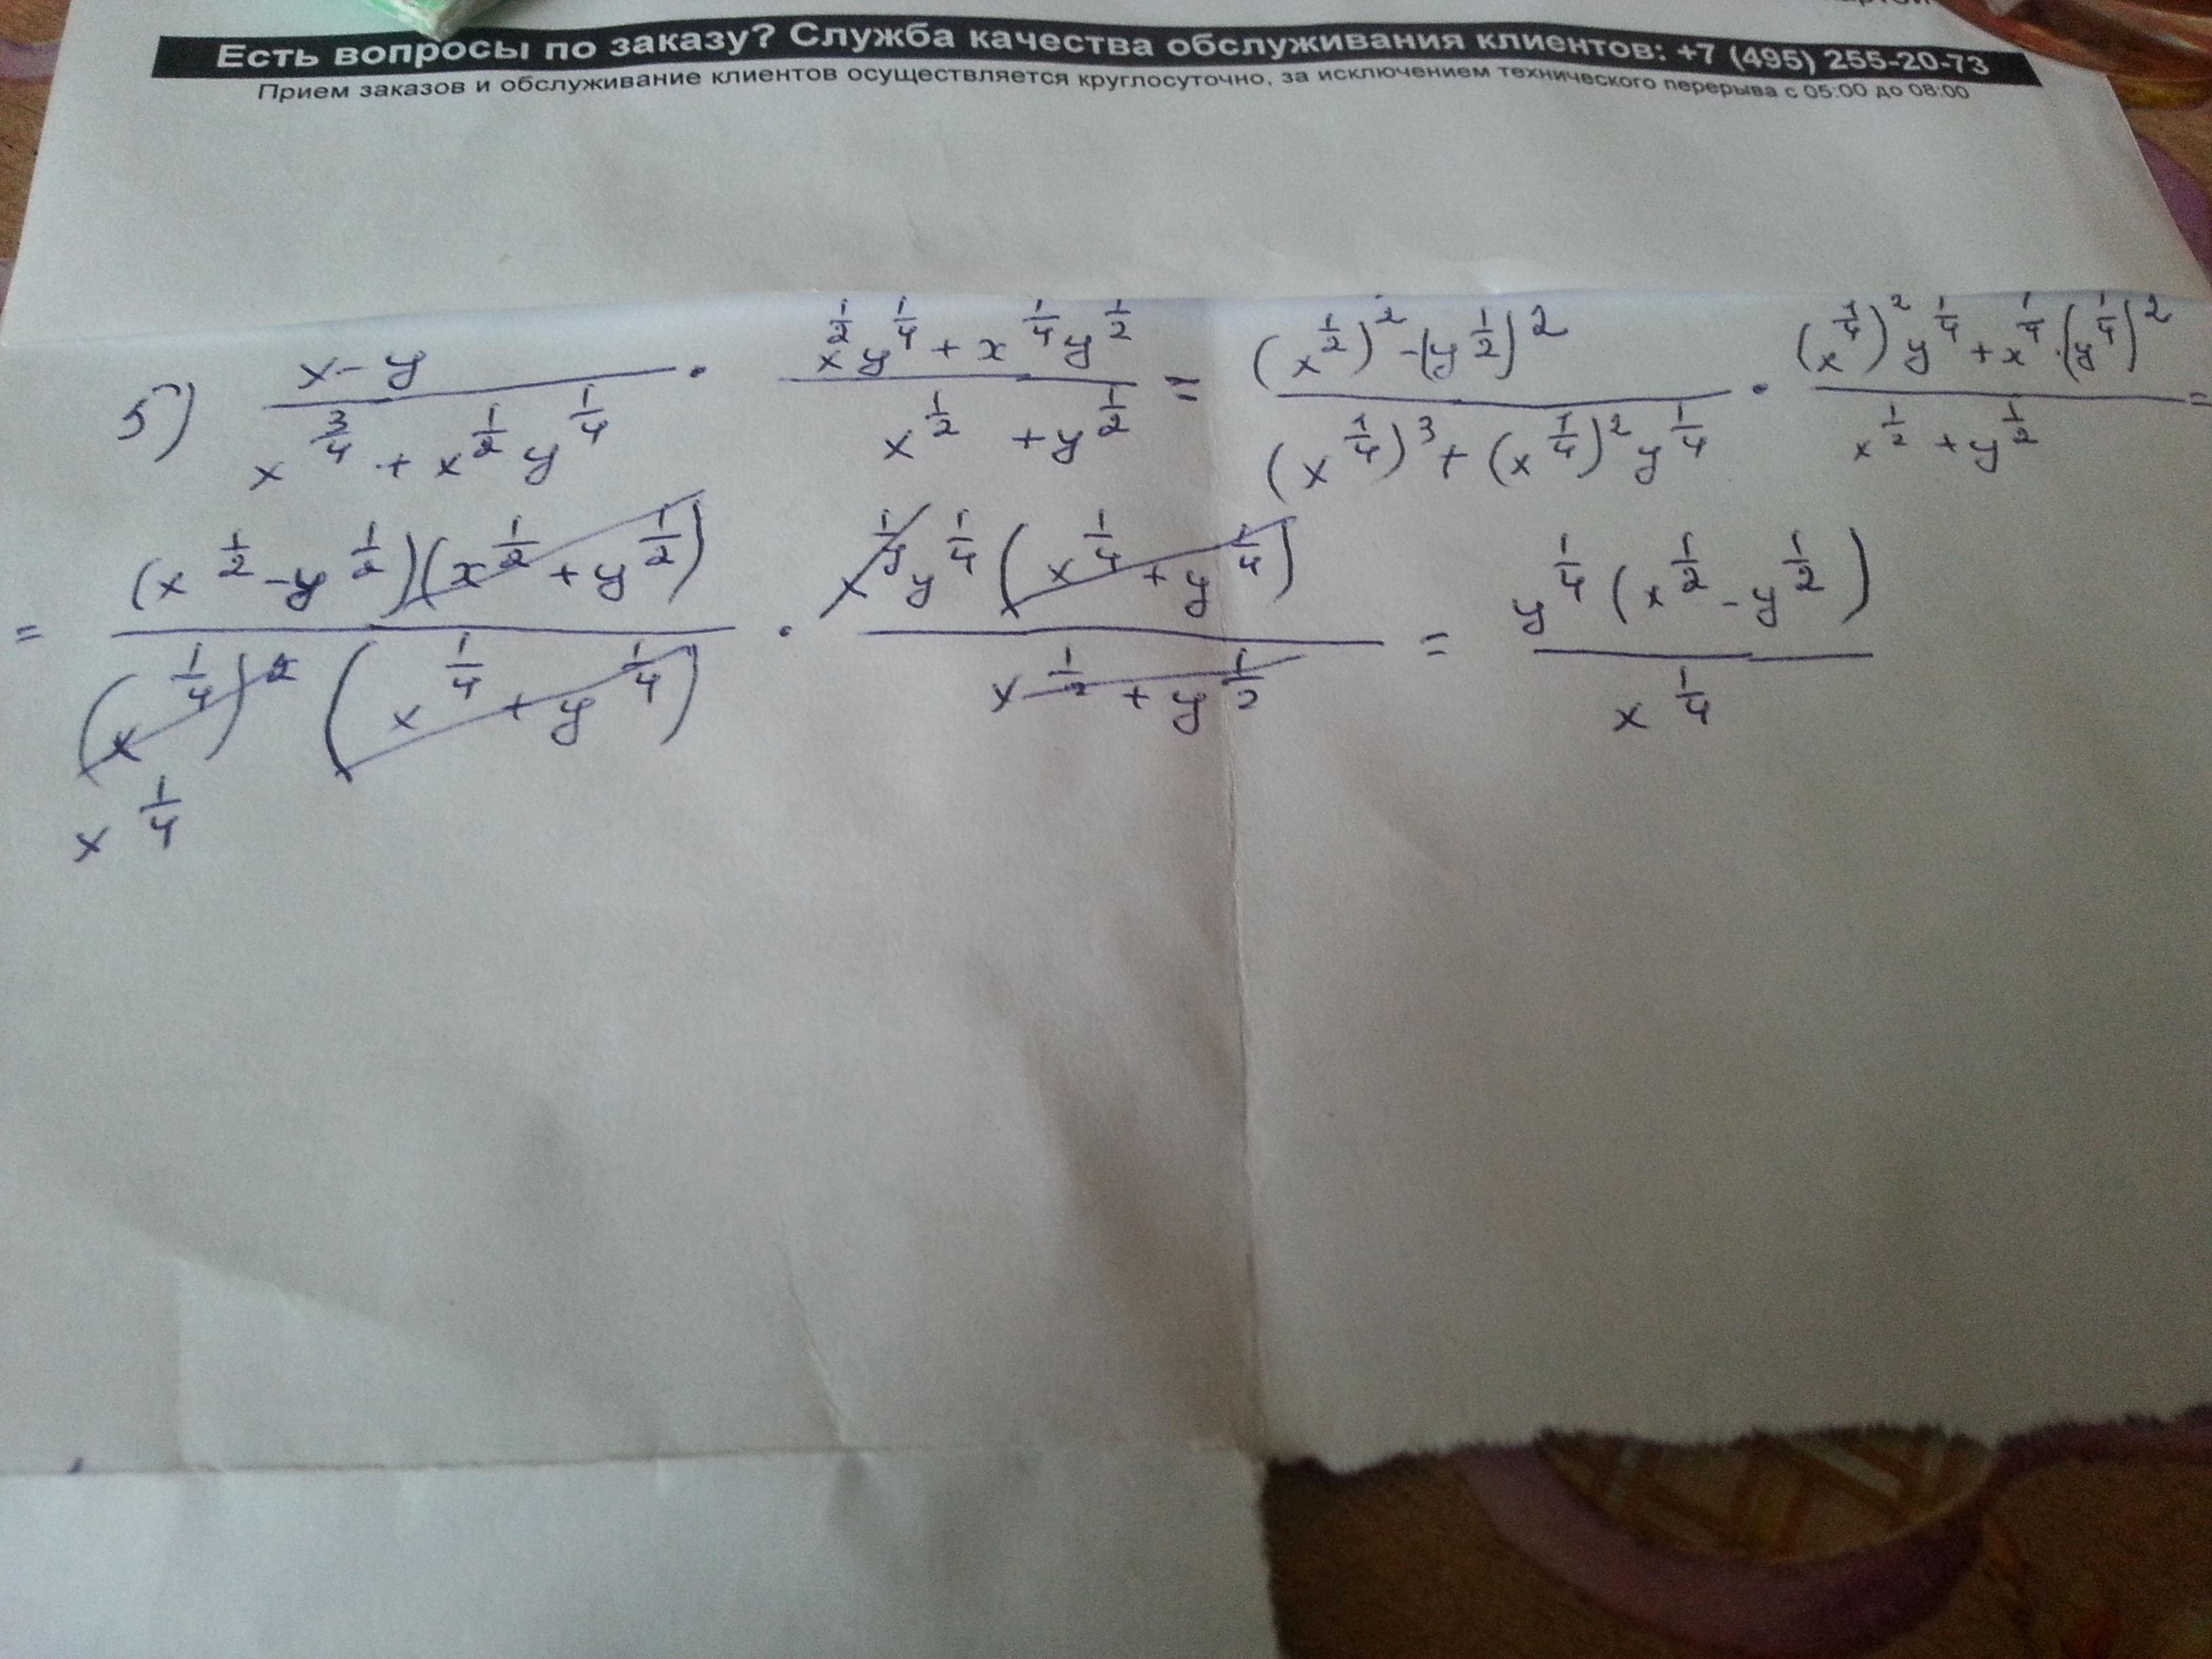 Есть вопросы по заказу? Служба качества обслуживания клиентов: +7 (495) 255-20-73
Прием заказов и обслуживание клиентов осуществляется круглосуточно, за исключением технического перерыва с 05:00 до 08:00
5) \frac{x-y}{x^{\frac{3}{4}}+x^{\frac{1}{2}}y^{\frac{1}{4}}} \cdot \frac{x^{\frac{1}{2}}y^{\frac{1}{4}}+x^{\frac{1}{4}}y^{\frac{1}{2}}}{x^{\frac{1}{2}}+y^{\frac{1}{2}}} = \frac{(x^{\frac{1}{2}})^2-(y^{\frac{1}{2}})^2}{(x^{\frac{1}{4}})^3+(x^{\frac{1}{4}})^2y^{\frac{1}{4}}} \cdot \frac{(x^{\frac{1}{4}})^2y^{\frac{1}{4}}+x^{\frac{1}{4}}\cdot(y^{\frac{1}{4}})^2}{x^{\frac{1}{2}}+y^{\frac{1}{2}}} =
= \frac{(x^{\frac{1}{2}}-y^{\frac{1}{2}})(x^{\frac{1}{2}}+y^{\frac{1}{2}})}{(x^{\frac{1}{4}})^2(x^{\frac{1}{4}}+y^{\frac{1}{4}})} \cdot \frac{x^{\frac{1}{4}}y^{\frac{1}{4}}(x^{\frac{1}{4}}+y^{\frac{1}{4}})}{x^{\frac{1}{2}}+y^{\frac{1}{2}}} = \frac{y^{\frac{1}{4}}(x^{\frac{1}{2}}-y^{\frac{1}{2}})}{x^{\frac{1}{4}}}
x^{\frac{1}{4}}